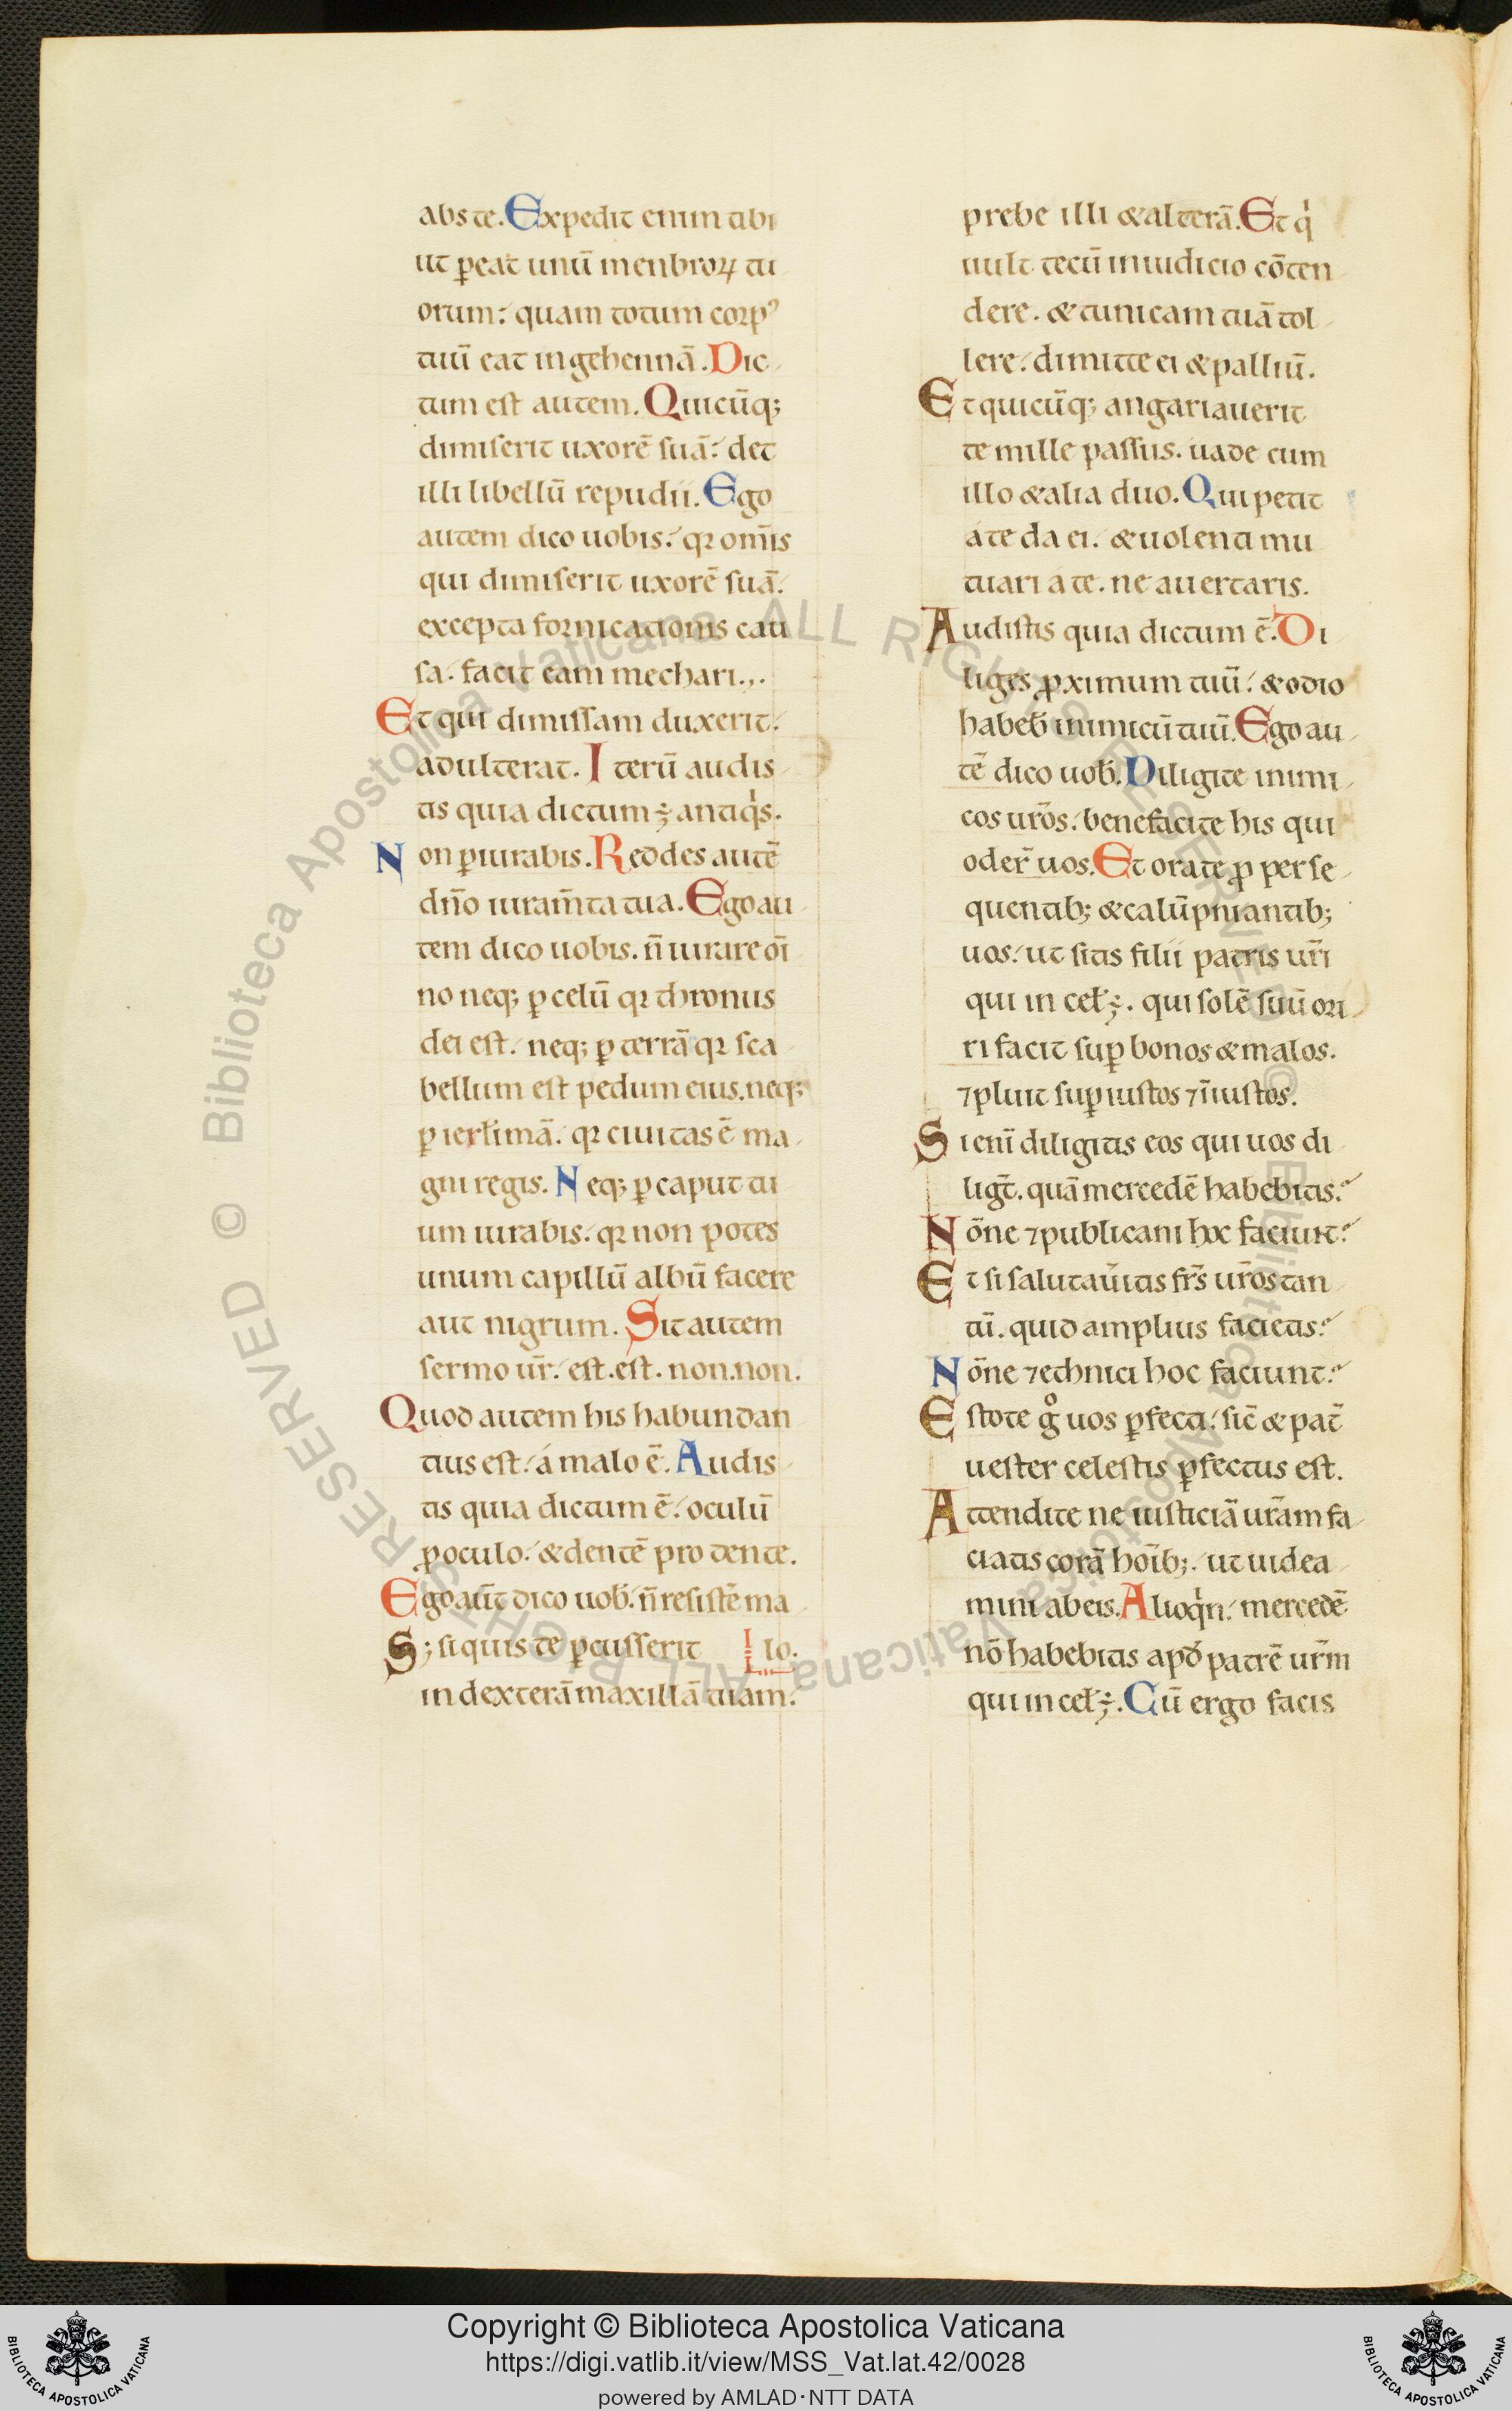 abs te. Expedit enim tibi
ut ꝑeat unū menbroꝝ tu
orum: quam totum corpꝰ
tuū eat in gehennā. Dic
tum est autem. Quicūq;
dimiserit uxorē suā: det
illi libellū repudii. Ego
autem dico uobis: qꝛ om̄is
qui dimiserit uxorē suā:
excepta fornicationis cau
sa. facit eam mechari.,.
Et qui dimissam duxerit:
adulterat. Iterū audis
tis quia dictum ÷ antiqͥs.
Non ꝑiurabis. Reddes autē
dn̄o iuram̄ta tua. Ego au
tem dico uobis. n̄ iurare oī
no neq; ꝑ celū qꝛ thronus
dei est. neq; ꝑ terrā qꝛ sca
bellum est pedum eius. neq;
ꝑ ierłimā. qꝛ ciuitas ē ma
gni regis. Neq; ꝑ caput tu
um iurabis. qꝛ non potes
unum capillū albū facere
aut nigrum. Sit autem
sermo ur̄. est. est. non. non.
Quod autem his habundan
tius est. á malo ē. Audis
tis quia dictum ē. oculū
ꝓ oculo. & dentē pro dente.
Ego aūt dico uoƀ. n̄ resistē ma
S; si quis te ꝑcusserit lo.
in dexterā maxillā tuam:
prebe illi & alterā. Et qͥ
uult tecū in iudicio cōten
dere. & tunicam tuā tol
lere: dimitte ei & palliū.
Et quicūq; angariauerit
te mille passus. uade cum
illo & alia duo. Qui petit
á te da ei. & uolenti mu
tuari a te. ne auertaris.
Audistis quia dictum ē. Di
liges ꝓximum tuū. & odio
habeƀ inimicū tuū. Ego au
tē dico uoƀ. Diligite inimi
cos ur̄os. benefacite his qui
oder̄ uos. Et orate ꝓ perse
quentib; & calūpniantib;
uos. ut sitis filii patris ur̄i
qui in ceł ÷. qui solē suū ori
ri facit suꝑ bonos & malos.
⁊ pluit suꝑ iustos ⁊ īiustos.
Si enī diligitis eos qui uos di
ligt̄. quā mercedē habebitis:
Nōne ⁊ publicani hoc faciunt:
Et si salutau̾itis fr̄s ur̄os tan
tū. quid amplius facietis:
Nōne ⁊ ethnici hoc faciunt:
Estote gͦ uos ꝑfecti. sic̄ & pat̄
uester celestis ꝑfectus est.
Attendite ne iusticiā ur̄am fa
ciatis corā hoīb;. ut uidea
mini ab eis. Alioqͥn. mercedē
nō habebitis apđ patrē ur̄m
qui in ceł ÷. Cū ergo facis
© Biblioteca Apostolica Vaticana ALL RIGHTS RESERVED
Copyright © Biblioteca Apostolica Vaticana
https://digi.vatlib.it/view/MSS_Vat.lat.42/0028
powered by AMLAD·NTT DATA
BIBLIOTECA APOSTOLICA VATICANA
BIBLIOTECA APOSTOLICA VATICANA